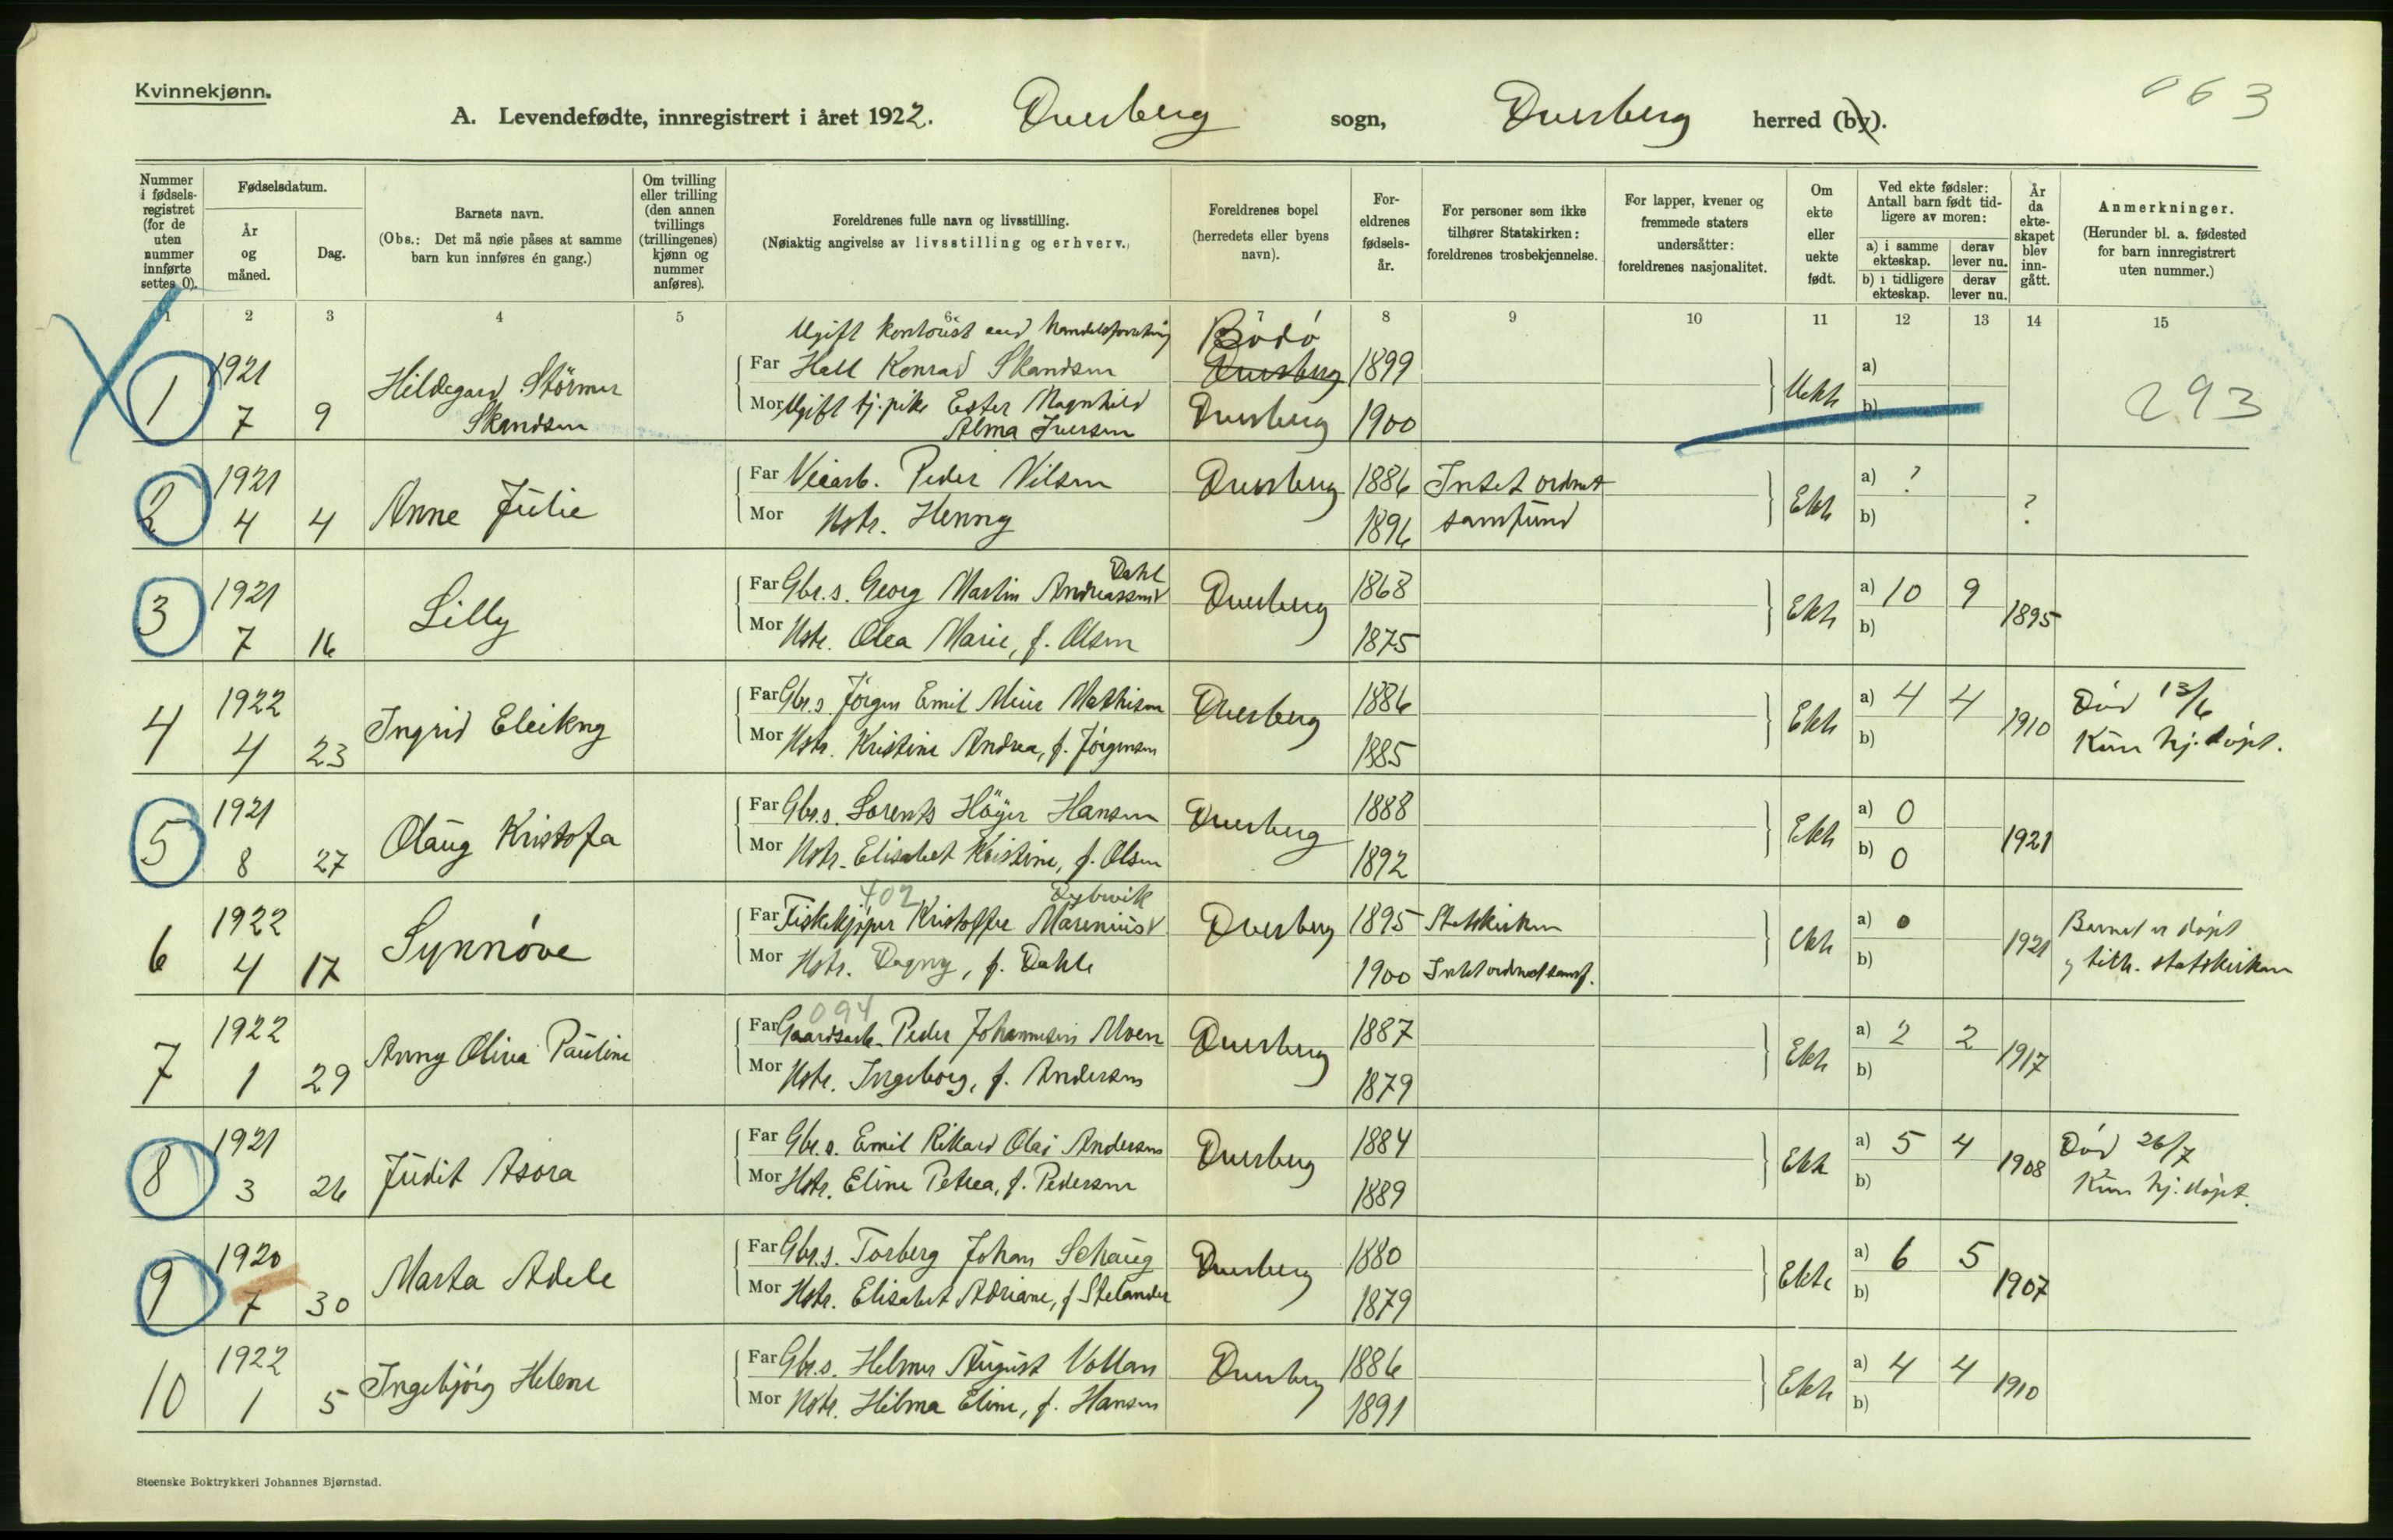 Kvinnekjønn.
063
A. Levendefødte, innregistrert i året 1922. Dverberg sogn, Dverberg herred (by).
Nummer i fødsels-registret (for de uten nummer innførte settes 0).
Fødselsdatum.
År og måned.
Dag.
Barnets navn.
(Obs.: Det må nøie påses at samme barn kun innføres én gang.)
Om tvilling eller trilling (den annen tvillings (trillingenes) kjønn og nummer anføres).
Foreldrenes fulle navn og livsstilling.
(Nøiaktig angivelse av livsstilling og erhverv.)
Foreldrenes bopel (herredets eller byens navn).
For-eldrenes fødsels-år.
For personer som ikke tilhører Statskirken: foreldrenes trosbekjennelse.
For lapper, kvener og fremmede staters undersåtter: foreldrenes nasjonalitet.
Om ekte eller uekte født.
Ved ekte fødsler: Antall barn født tid-ligere av moren:
a) i samme ekteskap. derav lever nu.
b) i tidligere ekteskap. derav lever nu.
År da ekte-skapet blev inn-gått.
Anmerkninger.
(Herunder bl. a. fødested for barn innregistrert uten nummer.)
1 2 3 4 5 6 7 8 9 10 11 12 13 14 15
Ugift kontorist ved handelsforretning Bodö
1 1921 7 9 Hildegard Störmer Skandsen
Far Hall Konrad Skandsen Dverberg 1899
Mor Ugift tj.pike Ester Magnhild Alma Iversen Dverberg 1900
Uekte a) b) 293
2 1921 4 4 Anne Julie
Far Veiarb. Peder Nilsen Dverberg 1886 Intet ordnet
Mor Hstr. Henny 1896 samfund
Ekte a) ? b) ?
3 1921 7 16 Lilly
Far Gbr.s. Georg Martin Andreassen Dahl Dverberg 1868
Mor Hstr. Olea Marie, f. Olsen 1875
Ekte a) 10 9 b) 1895
4 1922 4 23 Ingrid Eleikny
Far Gbr.s. Jörgen Emil Meier Mathisen Dverberg 1886
Mor Hstr. Kristine Andrea, f. Jörgensen 1885
Ekte a) 4 4 b) 1910 Död 13/6
Kun hj.døpt.
5 1921 8 27 Olaug Kristofa
Far Gbr.s. Lorents Höyer Hansen Dverberg 1888
Mor Hstr. Elisabet Kristine, f. Olsen 1892
Ekte a) 0 b) 0 1921
6 1922 4 17 Synnöve
402
Far Fiskekjøper Kristoffer Marenius Dybwik Dverberg 1895 Statskirken
Mor Hstr. Dagny, f. Dahle 1900 Intet ordnet samf.
Ekte a) 0 b) 1921 Barnet er døpt
og tilh. statskirken
7 1922 1 29 Anny Olivia Pauline
094
Far Gaardsarb. Peder Johannesen Moen Dverberg 1887
Mor Hstr. Ingeborg, f. Andersen 1879
Ekte a) 2 2 b) 1917
8 1921 3 26 Judit Asora
Far Gbr.s. Emil Rikard Olai Andersen Dverberg 1884
Mor Hstr. Eline Petrea, f. Pedersen 1889
Ekte a) 5 4 b) 1908 Död 26/7
Kun hj.døpt.
9 1920 7 30 Marta Adele
Far Gbr.s. Torberg Johan Schaug Dverberg 1880
Mor Hstr. Elisabet Adriane, f. Stelander 1879
Ekte a) 6 5 b) 1907
10 1922 1 5 Ingebjörg Helene
Far Gbr.s. Helmer August Vollan Dverberg 1886
Mor Hstr. Hilma Eline, f. Hansen 1891
Ekte a) 4 4 b) 1910
Steenske Boktrykkeri Johannes Bjørnstad.